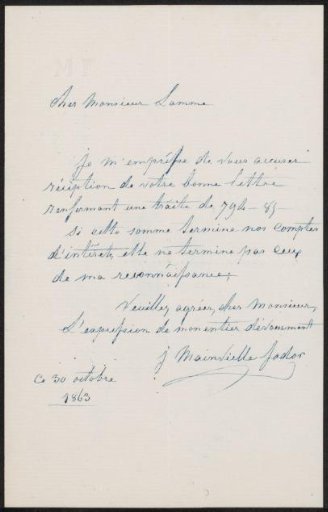 cher Monsieur Lamone
Je m'empresse de vous accuser
réception de votre bonne lettre
renfermant une traite de 794-85-
Si cette somme termine nos comptes
d'intérêts elle ne termine pas ceux
de ma reconnaissance.
Veuillez agréer, cher Monsieur,
L'expression de mon entier dévouement
J Mainvielle fodor
Ce 30 octobre
1863